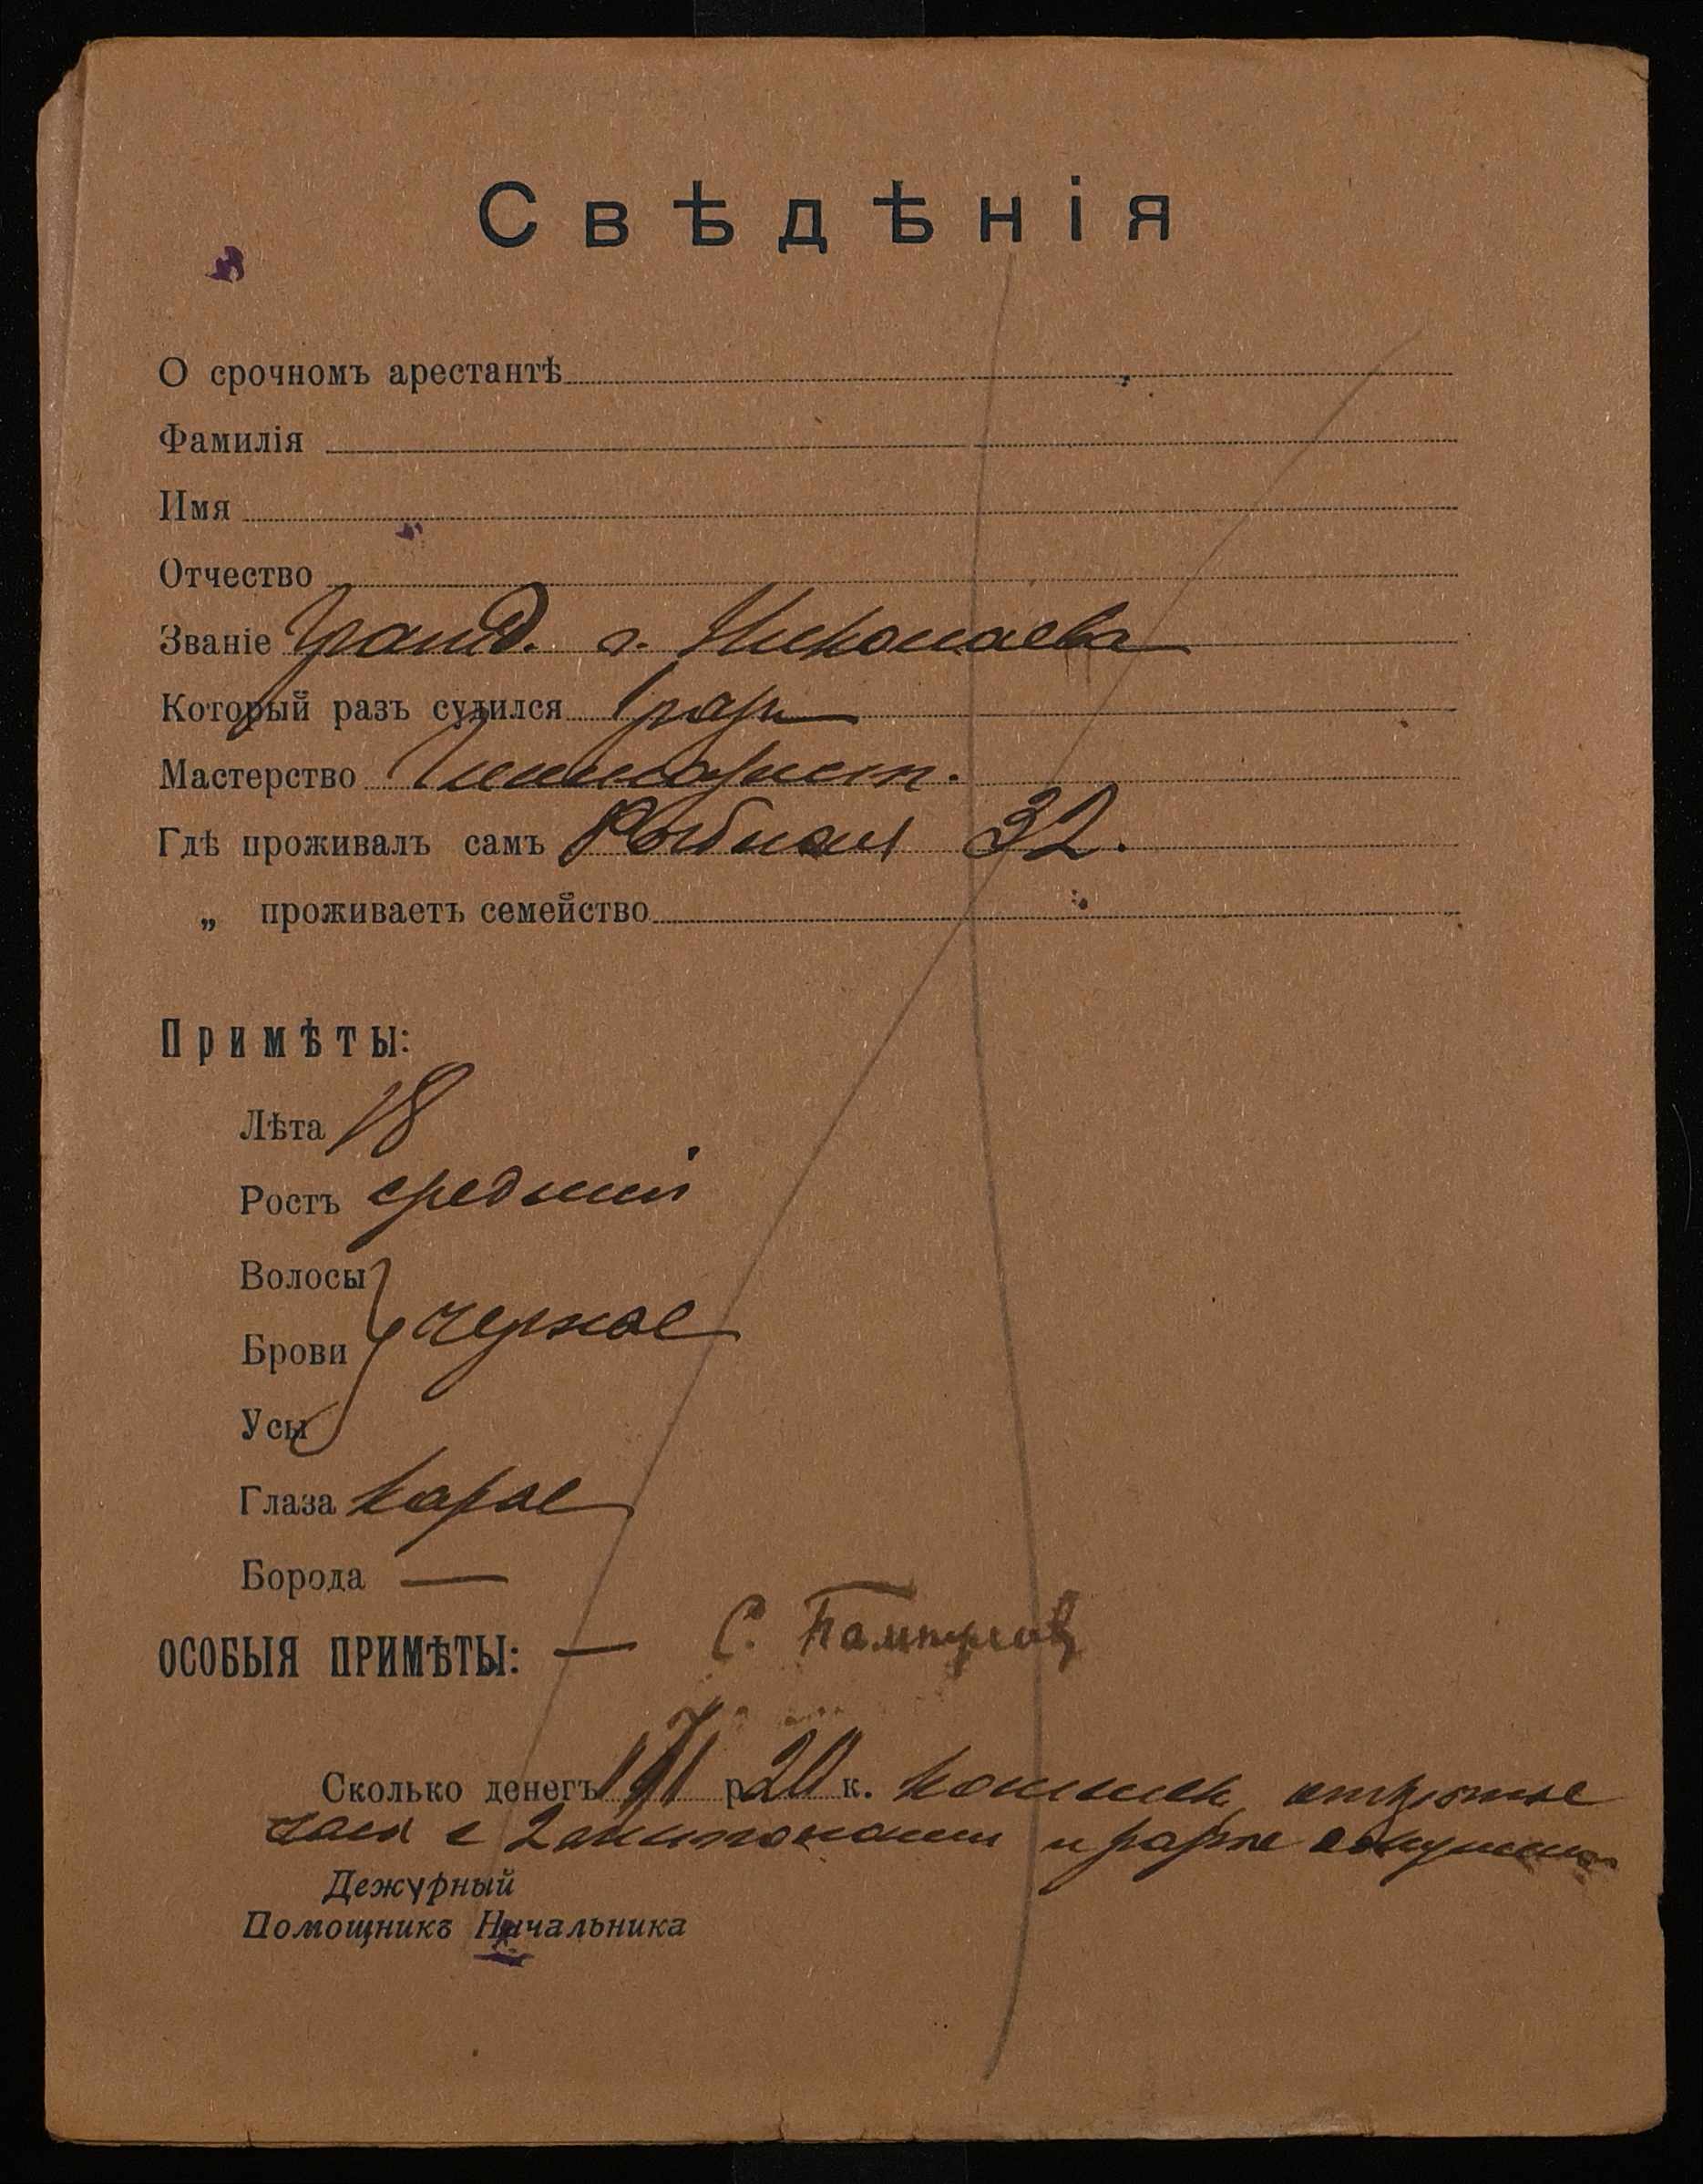 Свѣдѣнія
О срочномъ арестантѣ
Фамилія
Имя
Отчество
Званіе гражд. г. Николаева
Который разъ судился 1 разъ
Мастерство
Гдѣ проживалъ самъ Рыбная 32.
„ проживаетъ семейство
Примѣты:
Лѣта 18
Ростъ средній
Волосы
Брови черные
Усы
Глаза карые
Борода —
ОСОБЫЯ ПРИМѢТЫ: — С.
Сколько денегъ р 20 к.
часы с 2
Дежурный
Помощникъ Начальника